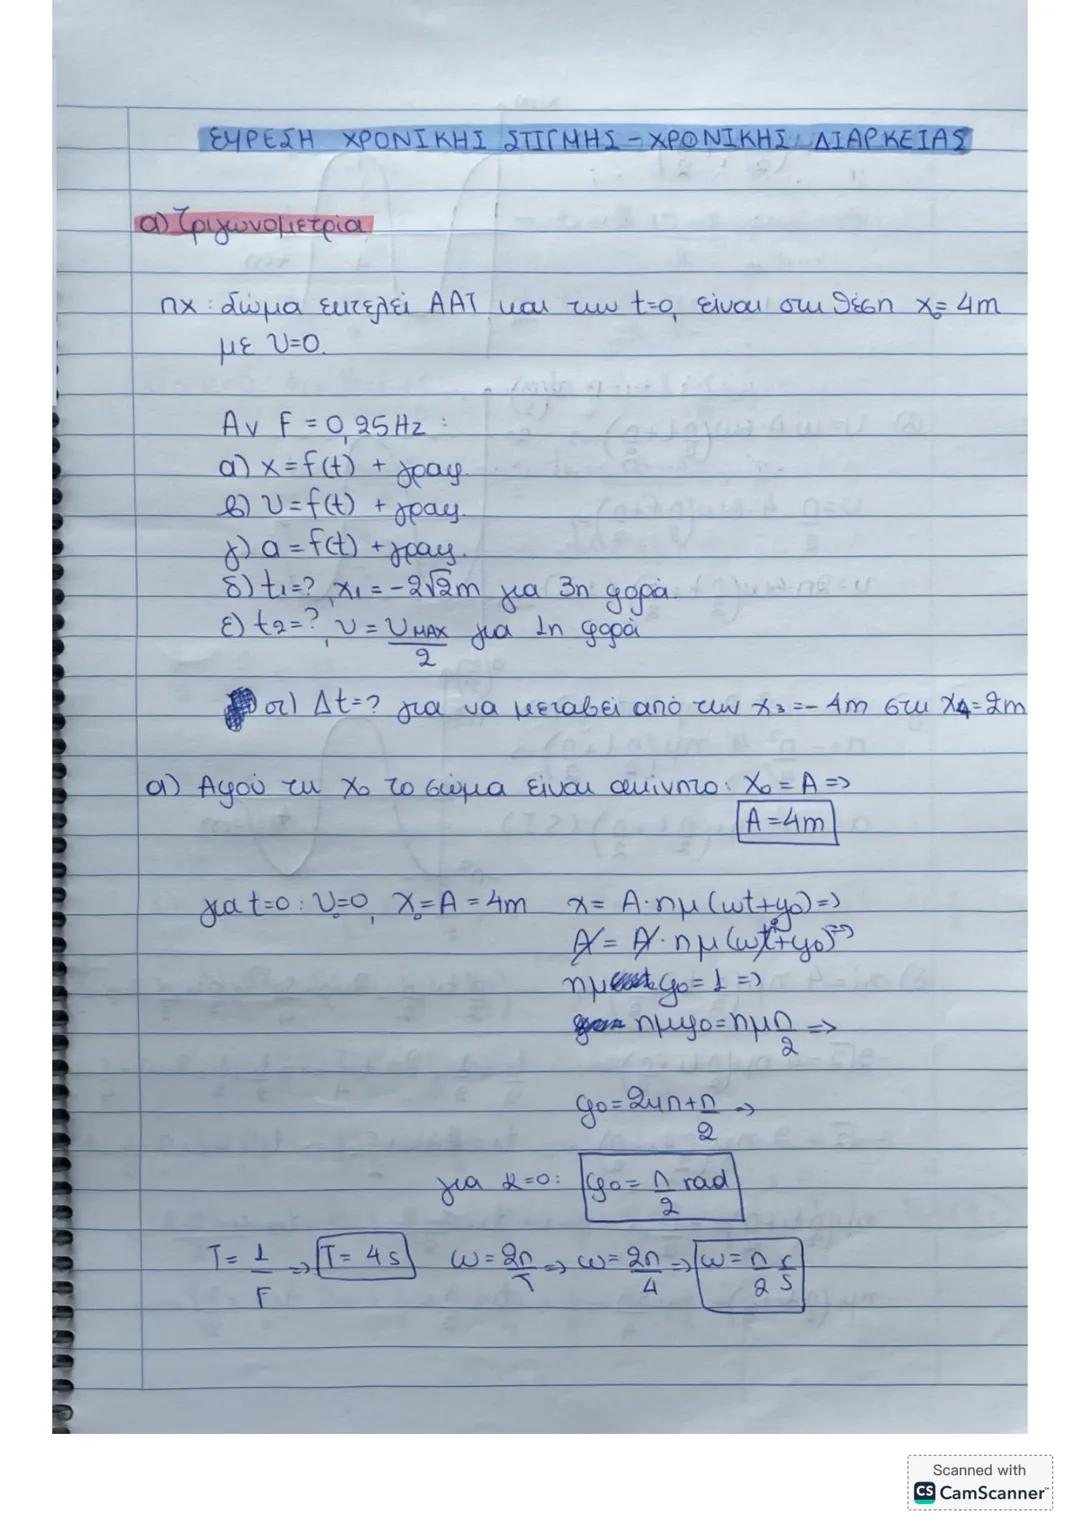 ΕΥΡΕΣΗ ΧΡΟΝΙΚΗΣ ΣΤΙΓΜΗΣ - ΧΡΟΝΙΚΗΣ ΔΙΑΡΚΕΙΑΣ
α) Τριγωνομετρία
πχ: Σώμα εκτελεί ΑΑΤ και την t=0, είναι στη θέση x₀=4m
με υ=0.
Αν F = 0,25Hz :
α) x=f(t) + γραφ.
β) υ=f(t) + γραφ.
γ) a=f(t) + γραφ.
δ) t₁=?, x₁=-2√2m για 3η φορά.
ε) t₂=?, υ=υMAX/2 για 1η φορά
στ) Δt=? για να μεταβεί από την x₃=-4m στη x₄=2m
α) Αφού τη x₀ το σώμα είναι ακίνητο: x₀=A =>
A=4m
για t=0: υ₀=0, x₀=A=4m x= A·ημ(ωt+φ₀)=>
A = A·ημ(ωt+φ₀)=>
ημφ₀=1 =>
ημφ₀=ημπ/2 =>
φ₀=2κπ+π/2 =>
για κ=0: φ₀=π/2 rad
T=1/F => T=4s ω=2π/T => ω=2π/4 => ω=π/2 r/s
Scanned with
CS CamScanner™